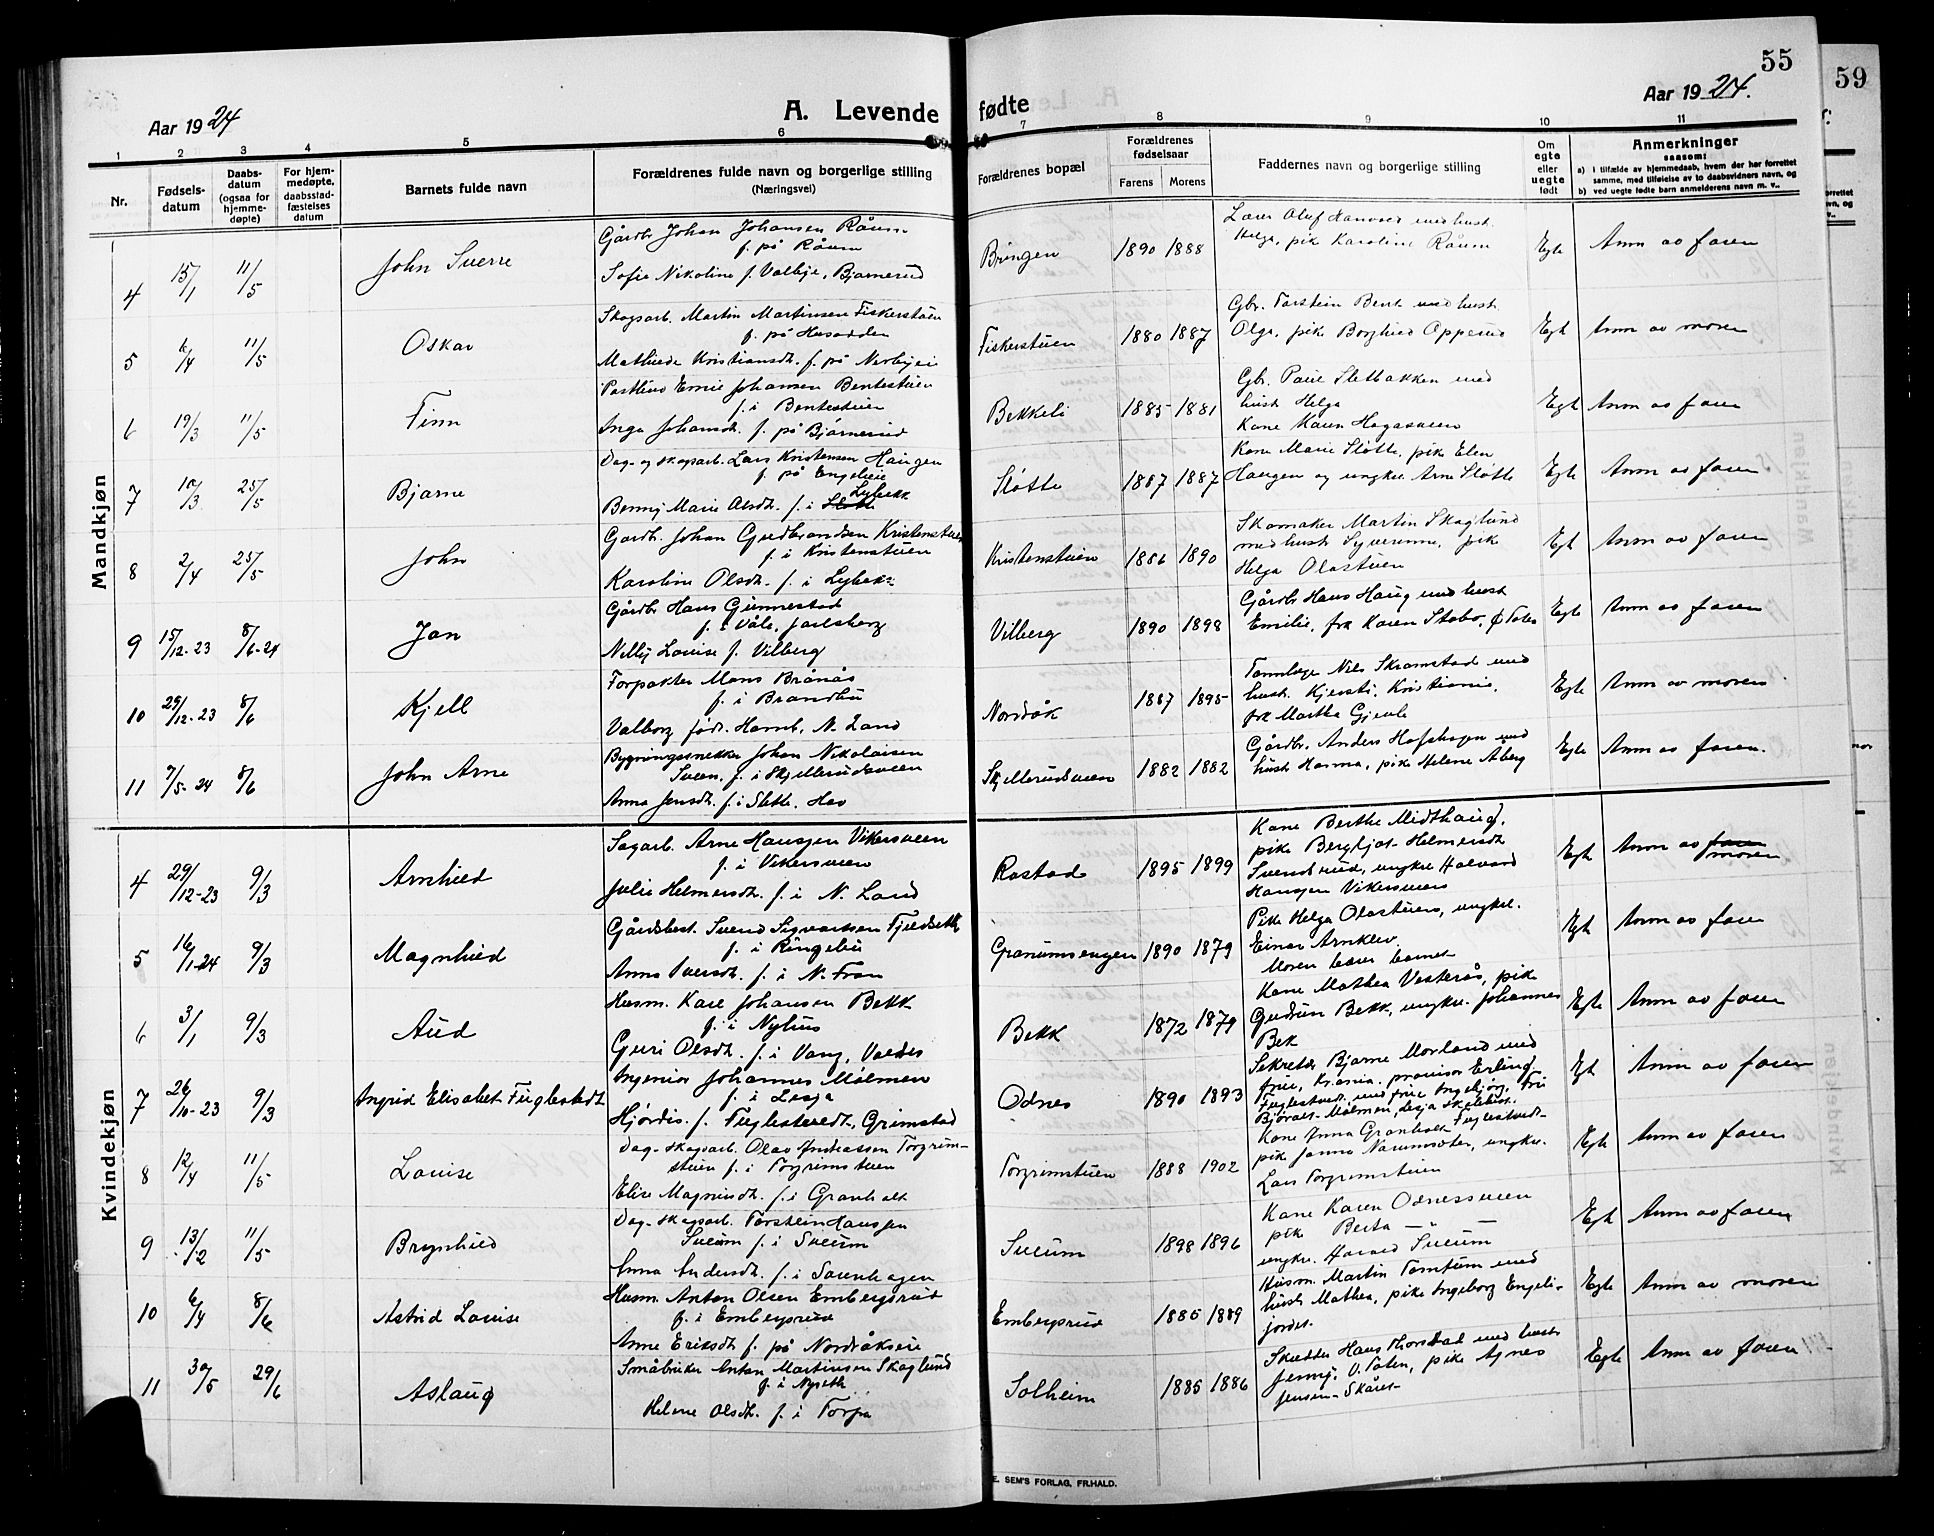 55
59
Aar 1924
A. Levende fødte
Aar 1924.
1 2 3 4 5 6 7 8 9 10 11
Nr.
Fødsels-
datum
Daabs-
datum
(ogsaa for
hjemme-
døpte)
For hjem-
medøpte,
daabsstad-
fæstelses
datum
Barnets fulde navn
Forældrenes fulde navn og borgerlige stilling
(Næringsvei)
Forældrenes bopæl
Forældrenes
fødselsaar
Farens Morens
Faddernes navn og borgerlige stilling
Om
egte
eller
uegte
født
Anmerkninger
saasom:
a) i tilfælde av hjemmedaab, hvem der har forrettet
samme, med tilføielse av to daabsvidners navn, og
b) ved uegte fødte barn anmelderens navn m. v..
Mandkjøn
4 15/1 11/5 John Sverre
Gårdbr Johan Johansen Råum
f. på Råum
Sofie Nikoline f. Valbye, Bjørnerud
Bringen 1890 1888
Lærer Oluf Hanssen med hust.
Helga, pike Karoline Råum
Egte Anm av faren
5 6/4 11/5 Oskar
Skogsarb. Martin Martinsen Fiskerstuen
f. på
Mathilde Kristiansdt. f. på
Fiskerstuen 1880 1887
Gbr. Torstein Bent med hust.
Olga, pike Borghild Opperud
Egte Anm av moren
6 19/3 11/5 Finn
Emil Johansen Bentestuen
f. i Bentestuen
Inga Johansdt. f. på Bjørnerud
Bekkeli 1885 1881
Gbr. Paul Sletbakken med
hust Helga
Kone Karen Hagasveen
Egte Anm av faren
7 10/3 25/5 Bjarne
Dag- og skogsarb. Lars Kristensen Haugen
f. på Engelien
Benny Marie Olsdt. f. i Slotte Lybekk
Sløtte 1887 1887
Kone Marie Sløtte, pike Elen
Haugen og ungkr. Arne Sløtte
Egte Anm av faren
8 2/4 25/5 John
Gardb. Johan Gudbrandsen Kristenstuen
f. i Kristenstuen
Karoline Olsdt. f. i Lybek
Kristenstuen 1886 1890
Skomaker Martin Skaglund
med hust Syverinne, pike
Helga Olastuen
Egte Anm av faren
9 15/12-23 8/6-24 Jan
Gårdbr Hans Gunnestad
f. i Våle, Jarlsberg
Nelly Louise f. Vilberg
Vilberg 1890 1898
Gårdbr Hans Haug med hust
Emilie, frk Karen Stabo, Ø Toten
Egte Anm av faren
10 29/12-23 8/6 Kjell
Forpakter Mons Brånås
f. i Brandbu
Valborg født Hamb, N. Land
Nordåk 1887 1895
Tannlæge Nils Skramstad med
hust. Kjersti, Kristiania,
frk Martha Gjerde
Egte Anm av moren
11 7/5-24 8/6 John Arne
Bygningssnekker Johan Nikolaisen
Sveen, f. i Skjellerudsveen
Anna Jensdt. f. i Slette, Hov
Skjellerudsveen 1882 1882
Gårdbr. Anders Hofshagen med
hust Hanna, pike Helene Åberg
Egte Anm av faren.
Kvindekjøn
4 29/12-23 9/3 Arnhild
Sagarb. Arne Hansen Vikersveen
f. i Vikersveen
Julie Helmersdt f. i N. Land
Rostad 1895 1899
Kone Berthe Midthaug,
pike Bergljot Helmersdt
Svendsrud, ungkr Halvard
Hansen Vikersveen
Egte Anm av faren moren
5 16/1-24 9/3 Magnhild
Gårdsbest. Svend Sigvartsen Fjeldseth
f. i Ringebu
Anna Iversdt. f. i N. Fron
Granumsengen 1890 1879
Pike Helga Olastuen, ungkr.
Einar Arnklev
Moren bærer barnet
Egte Anm av faren
6 3/1 9/3 Aud
Husm. Karl Johansen Bekk
f. i Nyhus
Guri Olsdt. f. i Vang, Valdres
Bekk 1872 1879
Kone Mathea Vesterås, pike
Gudrun Bekk, ungkr. Johannes
Bek
Egte Anm av faren
7 26/10-23 9/3 Ingrid Elisabet Fuglestedt
Ingeniør Johannes Mølmen
f. i Lesja
Hjørdis f. Fuglestvedt, Grimstad
Odnes 1890 1893
Sekretær Bjarne Morland med
frue, Kr.ania. provisor Erling
Fuglestvedt, med frue Ingebjørg, Frk
Bjørg Mølmen, Lesja
Fuglestvedt
Egt Anm av faren
8 12/4 11/5 Louise
Dag- skogsarb. Olav Andreassen Torgrim-
stuen f. i Torgrimstuen
Elise Magnusdt. f. i Granholt
Torgrimstuen 1888 1902
Kone Anna Granholt
pike Janna Narumseter, ungkr.
Lars Torgrimstuen
Egte Anm av faren
9 13/2 11/5 Brynhild
Dag- skogsarb. Torstein Hansen
Sveum f. i Sveum
Anna Andersdt. f. i Sorenhagen
Sveum 1898 1896
Kone Karen Odnessveen
pike Berta — Sveum
ungkr. Harald Sveum
Egte Anm av faren
10 6/4 8/6 Astrid Louise
Husm. Anton Olsen Embergsrud
f. i Embergsrud
Anne Eriksdt f. på Nordåkseie
Embergsrud 1885 1889
Husm. Martin Tomtum med
hust Mathea, pike Ingeborg Engeli-
jordet.
Egte Anm av moren
11 30/5 29/6 Aslaug
Småbruker Anton Martinsen Skaglund
f. i Nyseth
Helene Olsdt. f. i Torpa
Solheim 1885 1886
Skredder Hans Thorstad med hust
Jenny, V. Toten, pike Agnes
Jensen-Skåret
Egte Anm av faren
E. SEM'S FORLAG, FR.HALD.